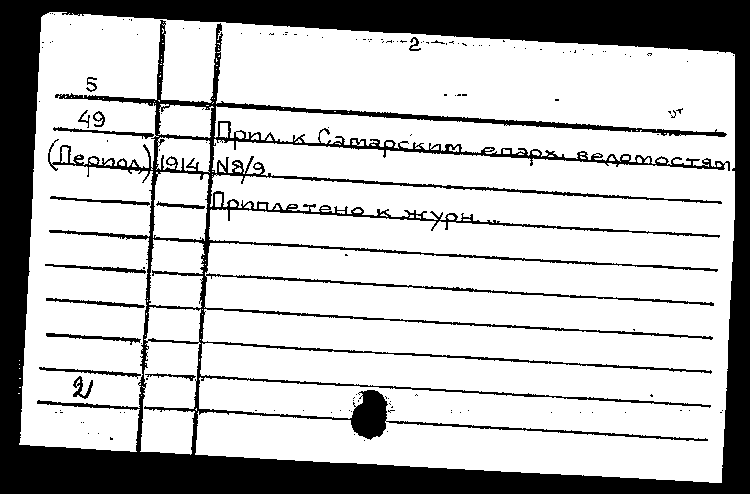 2
5
49 Прил. к Самарским епарх. ведомостям.
(Период) 1914, №8/9.
Приплетено к журн. ..
2/